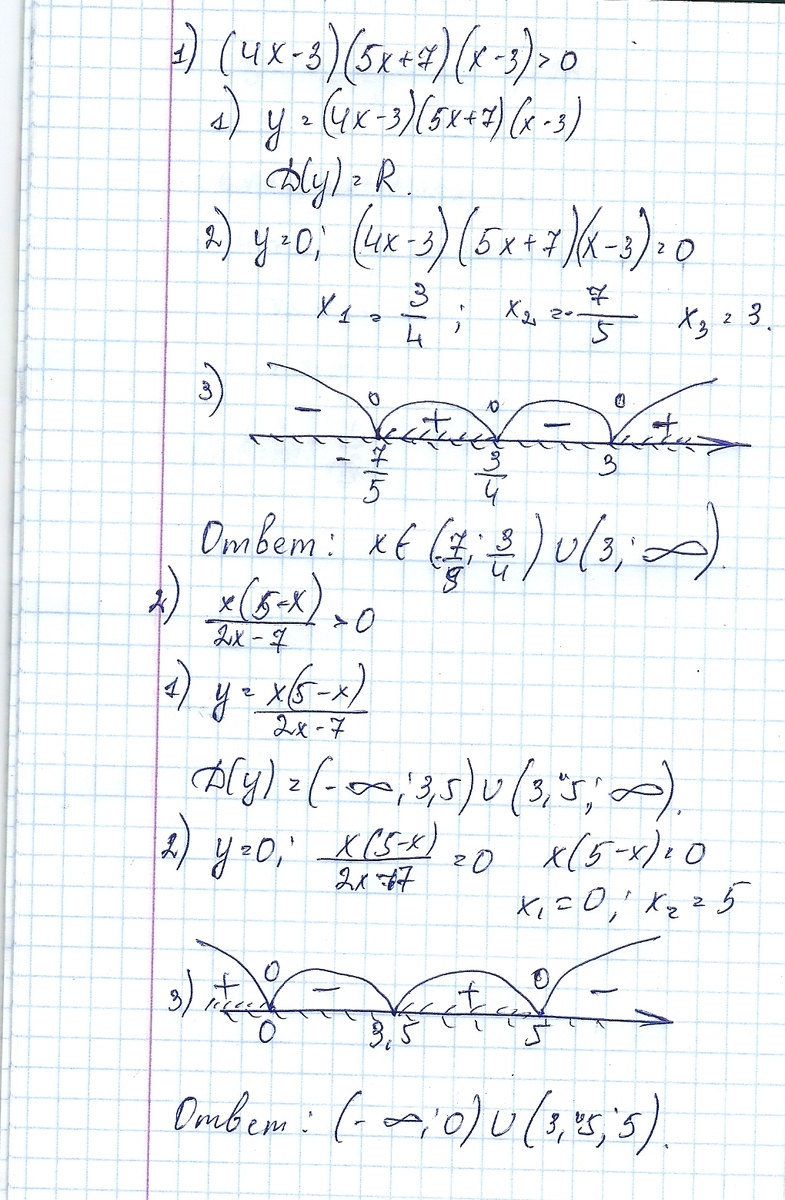 1) (4x-3)(5x+7)(x-3)>0
1) y=(4x-3)(5x+7)(x-3)
D(y)=R.
2) y=0; (4x-3)(5x+7)(x-3)=0
x1 = 3/4 ; x2 = -7/5 x3 = 3.
3) - 0 + 0 - 0 +
-7/5 3/4 3
Ответ: x∈(-7/5; 3/4)∪(3; ∞).
2) x(5-x)/2x-7 >0
1) y= x(5-x)/2x-7
D(y)=(-∞; 3,5)∪(3,5; ∞).
2) y=0; x(5-x)/2x-7 =0 x(5-x)=0
x1=0; x2=5
3) + 0 - + 0 -
0 3,5 5
Ответ: (-∞; 0)∪(3,5; 5).